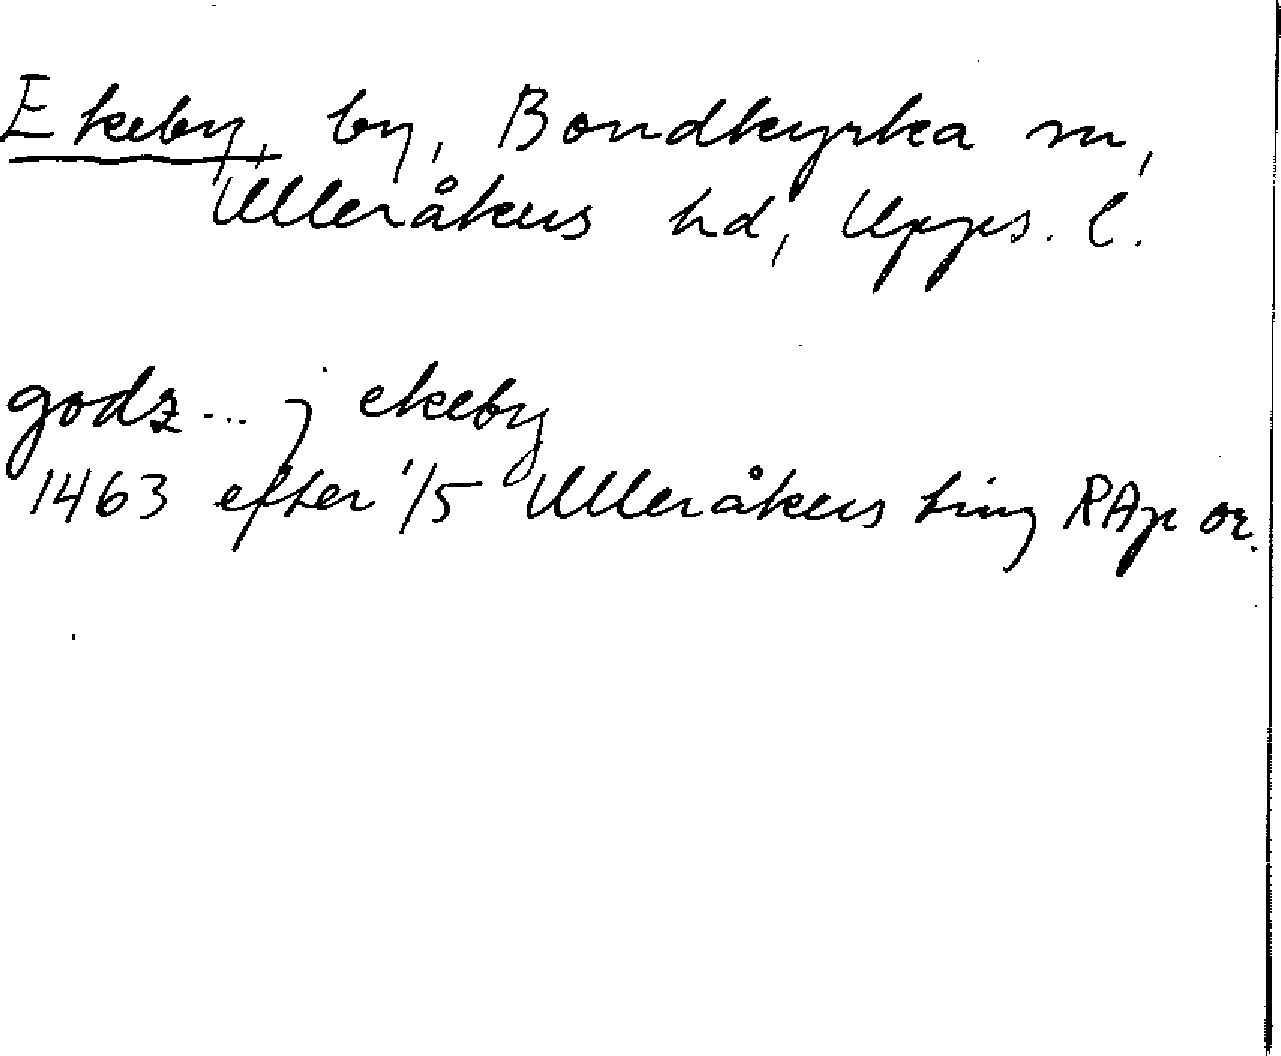 Ekeby, by, Bondkyrka sn,
Ulleråkers hd, Upps. l.
godz ... j ekeby
1463 efter 1/5 Ulleråkers ting RAp or.